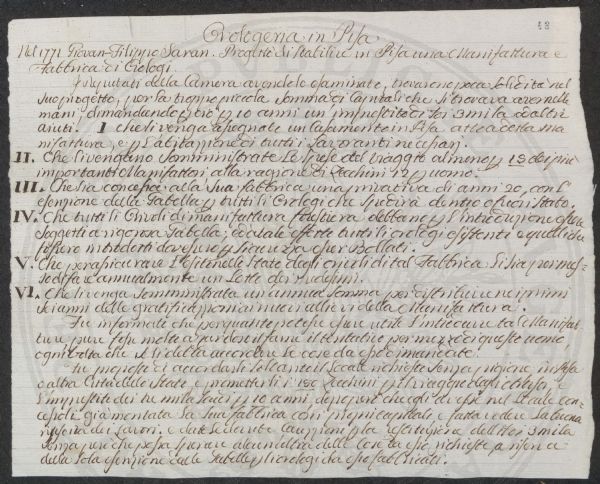 Orologeria in Pisa
48
Nel 1771 Giovan-Filippo Saran. Progettò di stabilire in Pisa una Manifattura e
Fabbrica di Orologi.
Deputati della Camera avendolo esaminato, trovarono poca solidità nel
suo progetto, per la troppo piccola somma di Capitali che si trovava aver nelle
mani, dimandando p 10 anni un imprestito di 3 mila ed altri
aiuti. I che si venga assegnato un Casamento in Pisa atto a detta ma
nifattura, e p l'abitazione di tutti i lavoranti necessari.
II. Che si vengano somministrate le spese del viaggio almeno p 12 dei più
importanti Manifattori alla ragione di Zecchini 12 p uomo.
III. Che sia concessa alla sua fabbrica una privativa di anni 20, con l'
esenzione della Gabella p tutti li Orologi che spedirà dentro o fuori Stato.
IV. Che tutti li Orioli di manifattura forestiera debbano p l'introduzione esser
soggetti a rigorosa Gabella, ed a tale effetto tutti li orologi esistenti e quelli che
fossero introdotti dovessero p sicurezza esser Bollati.
V. Che per assicurare l'esito nello Stato degli orioli di tal Fabbrica si sia permes-
so di fare annualmente un Lotto dei medesimi.
VI. Che si venga somministrata un annua somma per distribuire nei primi
sei anni delle gratificazioni ai nuovi allievi della Manifattura.
Fu informato che per quanto potesse essere utile l'introdurre tal Manifat-
tura, pure fosse molto azzardoso il farne il tentativo per mezzo di questo uomo
ogni volta che si debba accordare le cose da esso dimandate.
Fu proposto di accordarsi soltanto il Locale richiesto senza pigione in Pisa
o altra Città dello Stato, e promettersi li 150 Zecchini p il viaggio degli artisti, e
l'imprestito dei tre mila scudi p 10 anni, dopo però che egli avesse nel Locale con-
cesso già montata la sua fabbrica con propri capitali, e fatta vedere la buona
riuscita dei lavori, e date le dovute Cauzioni p la restituzione delli 3 mila
senza però che possa sperare alcun'altra delle cose da esso richieste a riserva
della sola esenzione dalle Gabelle p li orologi da esso fabbricati.